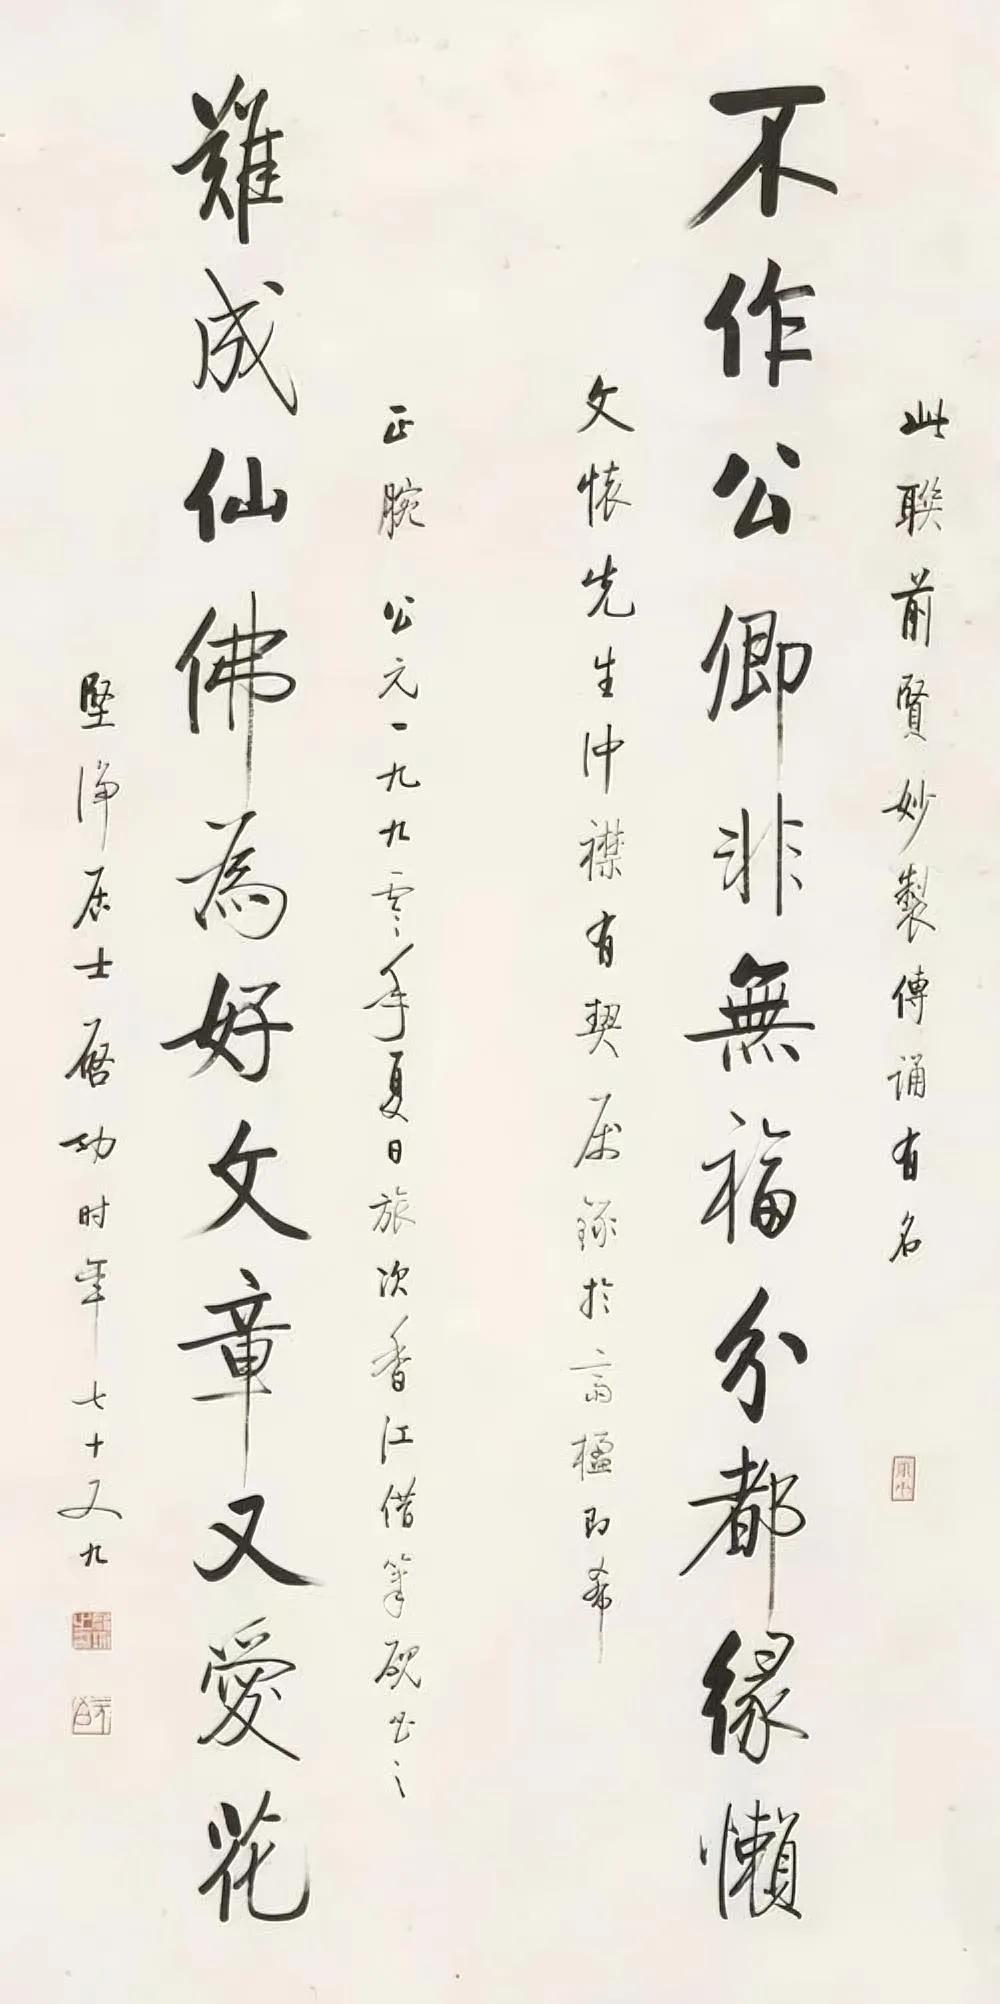 此聯前賢妙製傳誦有名
不作公卿非無福分都緣懶
文懷先生冲襟有契屬錄於高楹即希
正腕 公元一九九零年夏日旅次香江借筆硯書之
難成仙佛為好文章又愛花
堅淨居士啓功时年七十又九